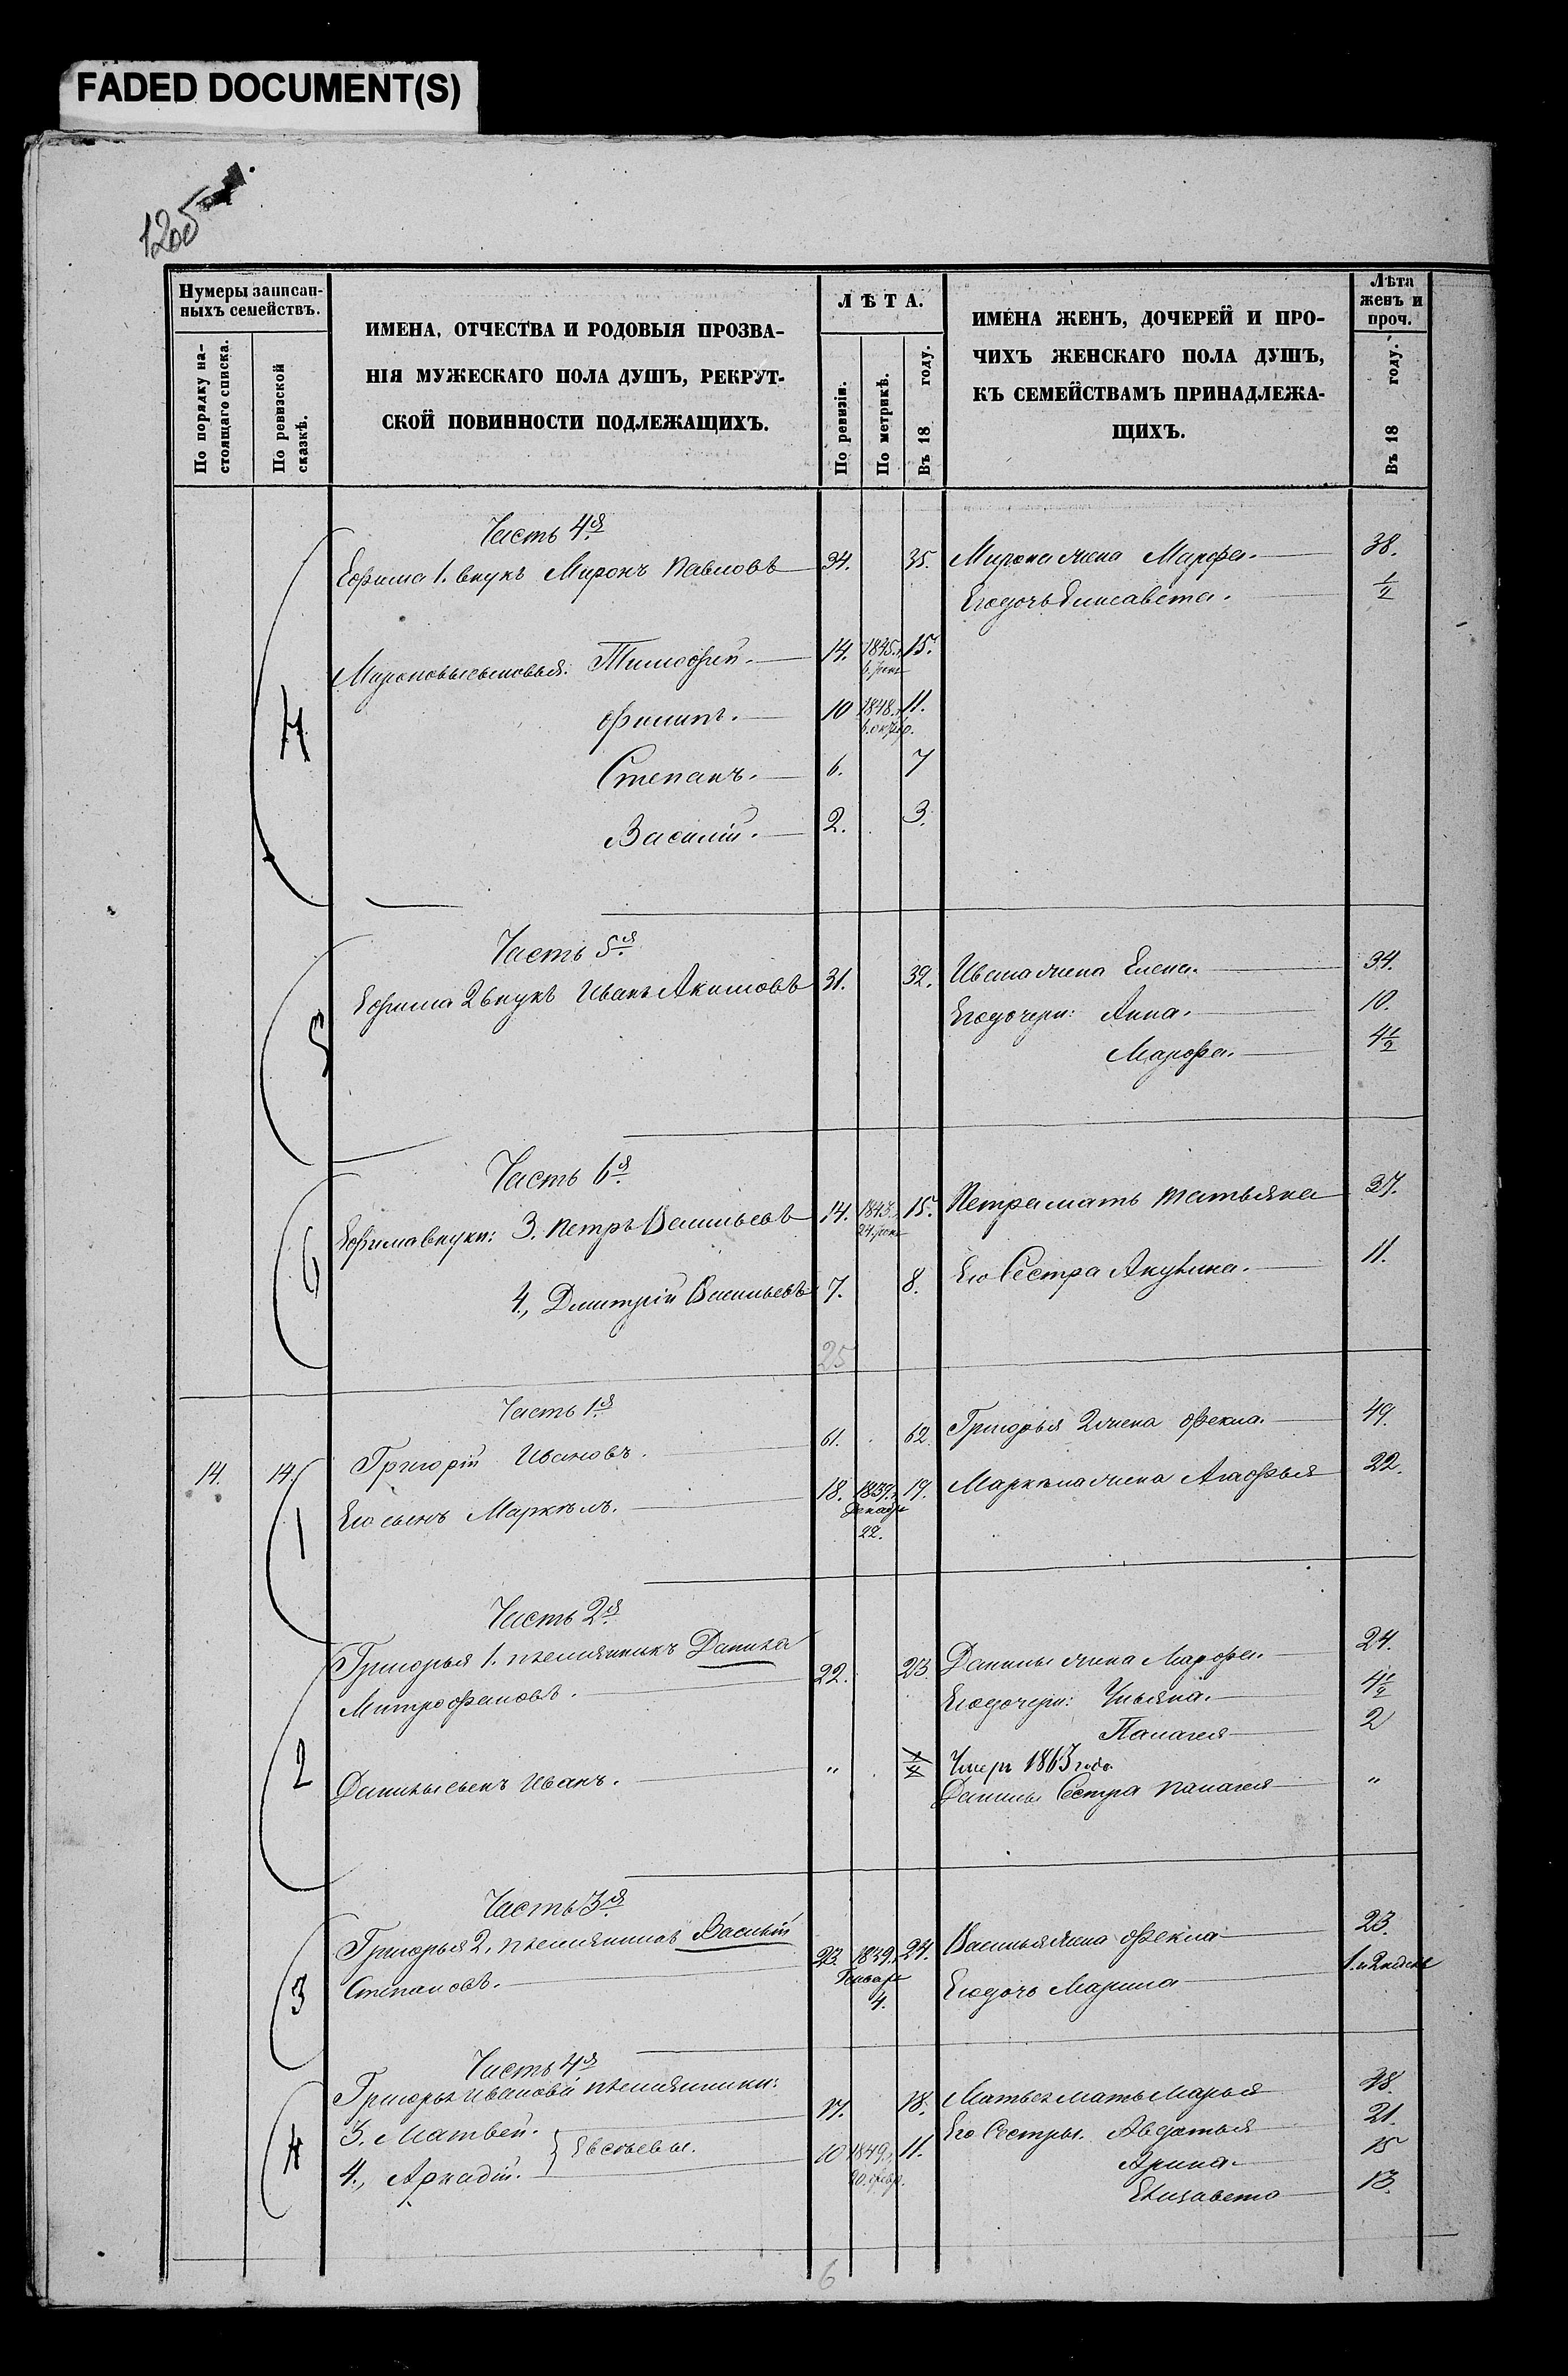 FADED DOCUMENT(S)
1205
Нумеры записан-
ныхъ семействъ.
По порядку на-
стоящаго списка.
По ревизской
сказкѣ.
ИМЕНА, ОТЧЕСТВА И РОДОВЫЯ ПРОЗВА-
НІЯ МУЖЕСКАГО ПОЛА ДУШЪ, РЕКРУТ-
СКОЙ ПОВИННОСТИ ПОДЛЕЖАЩИХЪ.
ЛѢТА.
По ревизіи.
По метрикѣ.
Въ 18 году.
ИМЕНА ЖЕНЪ, ДОЧЕРЕЙ И ПРО-
ЧИХЪ ЖЕНСКАГО ПОЛА ДУШЪ,
КЪ СЕМЕЙСТВАМЪ ПРИНАДЛЕЖА-
ЩИХЪ.
Лѣта
женъ и
проч.
Въ 18 году.
Часть 4я
4 Ефима 1. внукъ Миронъ Павловъ 34. 35. Мирона жена Марфа. 38.
Его дочь Елисавета. 1/2
Мироновы сыновья: Тимофей. 14. 1845. 15.
Филипъ. 10 1848. 11.
6. октбр.
Степанъ. 6. 7
Василій. 2. 3.
Часть 5я
5 Ефима 2 внукъ Иванъ Акимовъ 31. 32. Ивана жена Елена. 34.
Его дочери: Анна. 10.
Марфа. 4 1/2
Часть 6я
6 Ефима внуки: 3. Петръ Васильевъ 14. 1843. 15. Петра мать Татьяна 37.
4., Дмитрій Васильевъ 7. 8. Его Сестра Акулина. 11.
25
Часть 1я
14. 14. 1 Григорій Ивановъ. 61. 62. Григорья 2 жена Фекла. 49.
Его сынъ Маркелъ. 18. 1839. 19. Маркела жена Агафья 22.
Декабр
22.
Часть 2я
2 Григорья 1. племянникъ Данила
Митрофановъ. 22. 23. Данилы жена Марфа. 24.
Его дочери: Ульяна. 4 1/2
Палагея 2
Данилы сынъ Иванъ. " Умеръ 1863 года
Данилы Сестра Палагея "
Часть 3я
3 Григорья 2. племянникъ Василій
Степановъ. 23. 24. Василья жена Фекла 23.
Генваря
4. Его дочь Марина 1. и 2 недели
Часть 4я
4 Григорья Иванова племянники:
3. Матвей. Евсеевы. 17. 18. Матвея мать Марья 48.
Его Сестры. Авдотья 21.
4., Аркадій. 10 1849. 11. Арина. 15
20. февр. Елизавета 13.
6